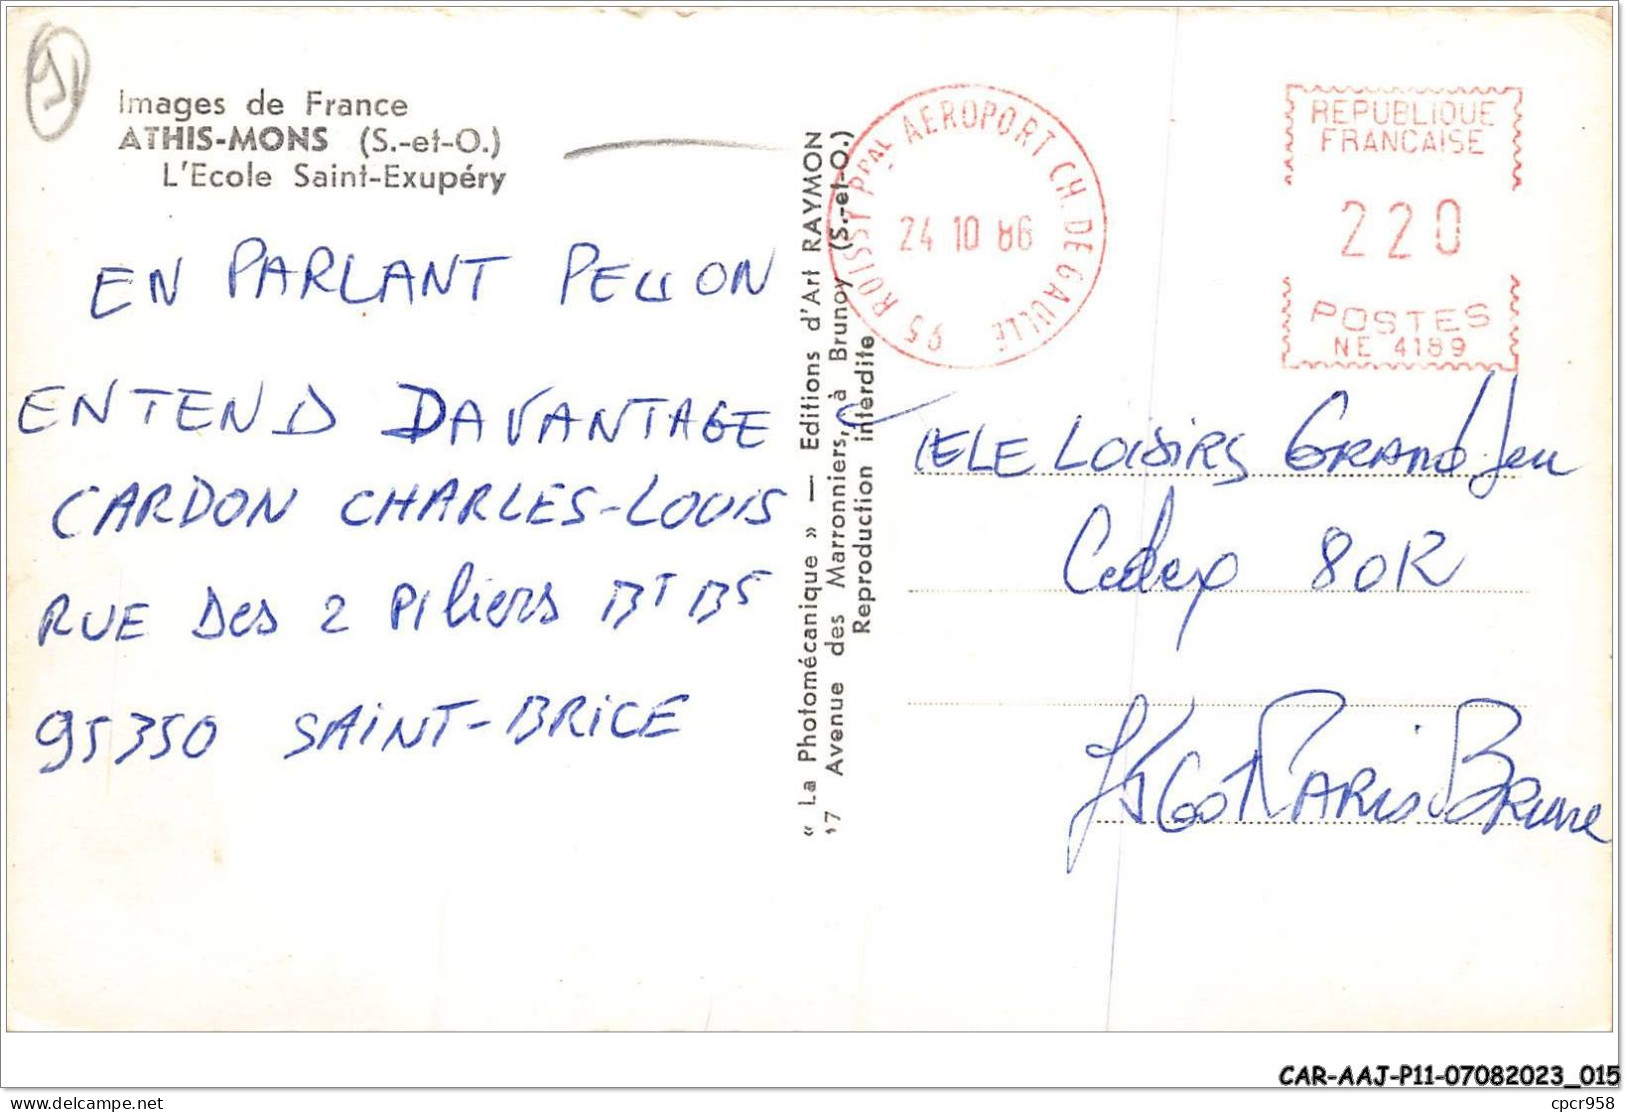 91
Images de France
ATHIS-MONS (S.-et-O.)
L'Ecole Saint-Exupéry
EN PARLANT PEU ON
ENTEND DAVANTAGE
CARDON CHARLES-LOUIS
RUE Des 2 Piliers BT B5
95350 SAINT-BRICE
« La Photomécanique » — Editions d'Art RAYMON
'7 Avenue des Marronniers, à Brunoy (S.-et-O.)
Reproduction interdite
95 ROISSY PPAL AEROPORT CH. DE GAULLE
24 10 86
REPUBLIQUE
FRANCAISE
220
POSTES
NE 4189
TELE LOISIRS GRAND Jeu
Cedex 80R
PARIS BRUNE
CAR-AAJ-P11-07082023_015
delcampe.net
cpcr958